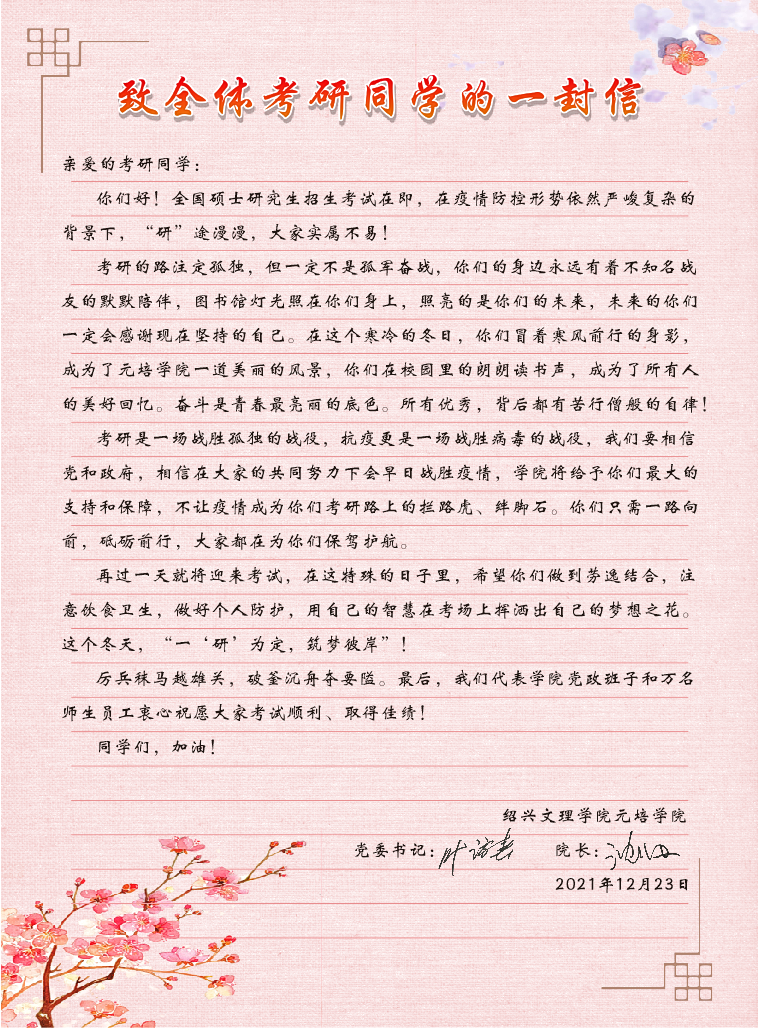 致全体考研同学的一封信
亲爱的考研同学：
你们好！全国硕士研究生招生考试在即，在疫情防控形势依然严峻复杂的
背景下，“研”途漫漫，大家实属不易！
考研的路注定孤独，但一定不是孤军奋战，你们的身边永远有着不知名战
友的默默陪伴，图书馆灯光照在你们身上，照亮的是你们的未来，未来的你们
一定会感谢现在坚持的自己。在这个寒冷的冬日，你们冒着寒风前行的身影，
成为了元培学院一道美丽的风景，你们在校园里的朗朗读书声，成为了所有人
的美好回忆。奋斗是青春最亮丽的底色。所有优秀，背后都有苦行僧般的自律！
考研是一场战胜孤独的战役，抗疫更是一场战胜病毒的战役，我们要相信
党和政府，相信在大家的共同努力下会早日战胜疫情，学院将给予你们最大的
支持和保障，不让疫情成为你们考研路上的拦路虎、绊脚石。你们只需一路向
前，砥砺前行，大家都在为你们保驾护航。
再过一天就将迎来考试，在这特殊的日子里，希望你们做到劳逸结合，注
意饮食卫生，做好个人防护，用自己的智慧在考场上挥洒出自己的梦想之花。
这个冬天，“一‘研’为定，筑梦彼岸”！
厉兵秣马越雄关，破釜沉舟夺要隘。最后，我们代表学院党政班子和万名
师生员工衷心祝愿大家考试顺利、取得佳绩！
同学们，加油！
绍兴文理学院元培学院
党委书记： 院长：
2021年12月23日